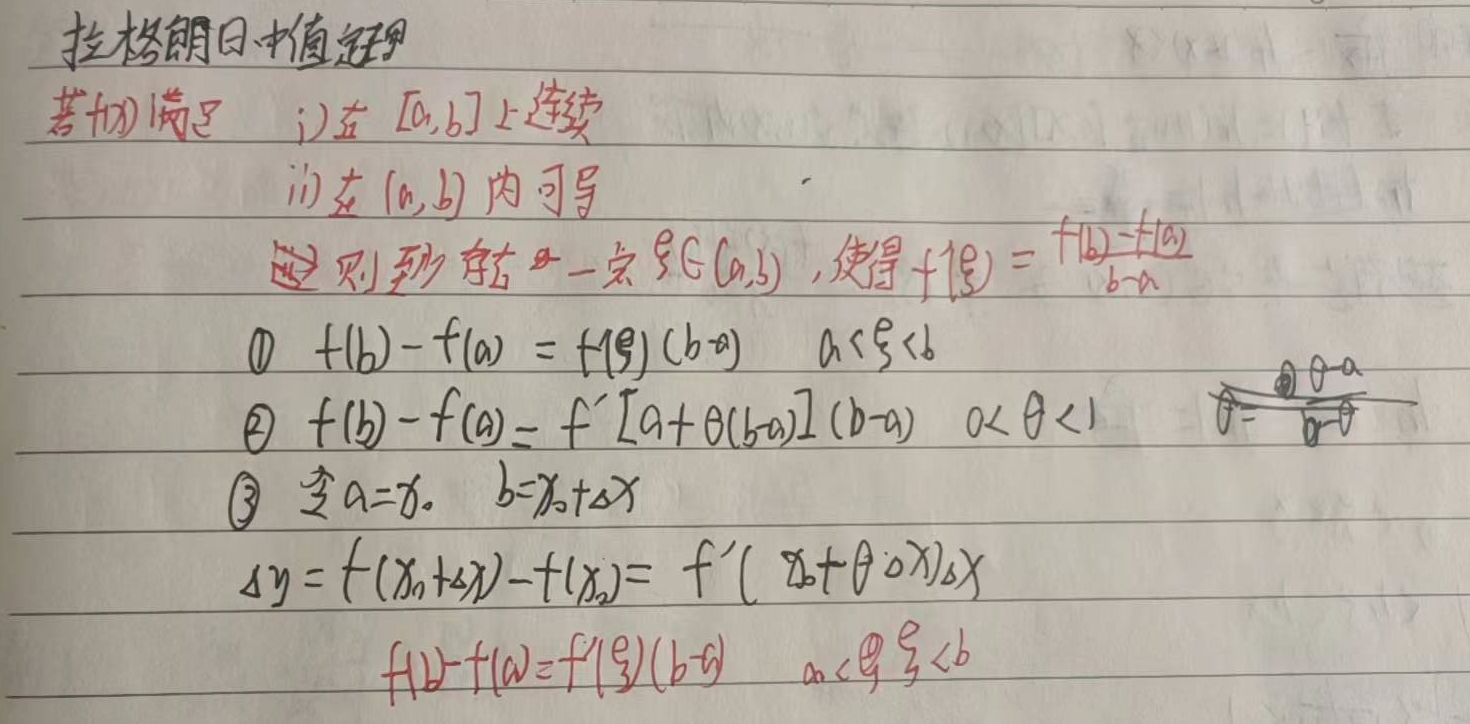 拉格朗日中值定理
若f(x)满足 i)在[a,b]上连续
ii)在(a,b)内可导
则至少存在一点ξ∈(a,b),使得f'(ξ)=\frac{f(b)-f(a)}{b-a}
① f(b)-f(a)=f'(ξ)(b-a) a<ξ<b
② f(b)-f(a)=f'[a+θ(b-a)](b-a) 0<θ<1
③ 令a=x₀ b=x₀+Δx
Δy=f(x₀+Δx)-f(x₀)=f'(x₀+θ·Δx)Δx
f(b)-f(a)=f'(ξ)(b-a) a<ξ<b